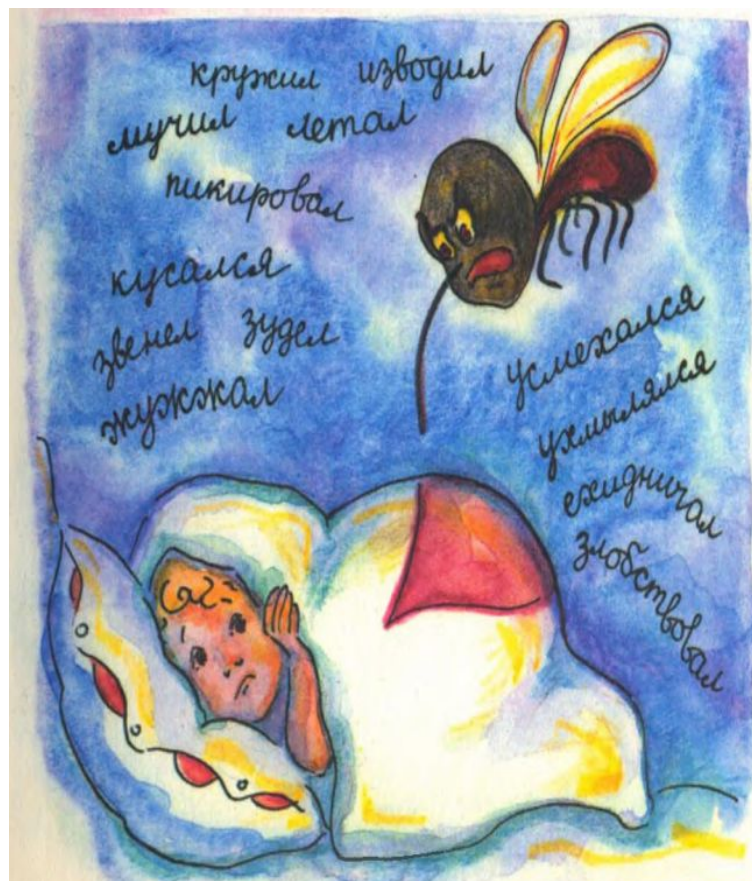 кружил изводил
мучил летал
пикировал
кусался
звенел зудел
жужжал
усмехался
ухмылялся
ехидничал
злобствовал